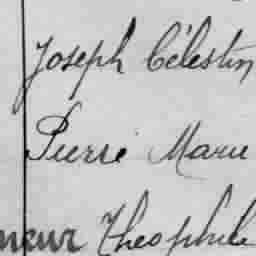 Joseph Célestin
Pierre Marie
meur Théophile